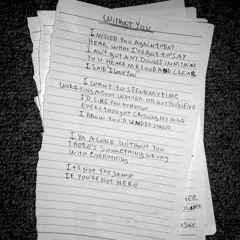 Without You
I MISSED YOU AGAIN TODAY
HEAR WHAT I'VE GOT TO SAY
I AIN'T GOT ANY DOUBTS IN MY MIND
YOU HEAR ME LOUD AND CLEAR
I SAID "I LOVE YOU"
I WANT TO SPEND MY TIME
WORRYING ABOUT WETHER OR NOT YOU'RE FINE
I'D LIKE YOU TO KNOW
EVERY THOUGHT CROSSING MY MIND
I KNOW YOU'D UNDERSTAND
I'M ALONE WITHOUT YOU
THERE'S SOMETHING WRONG
WITH EVERYTHING
IT'S NOT THE SAME
IF YOU'RE NOT HERE